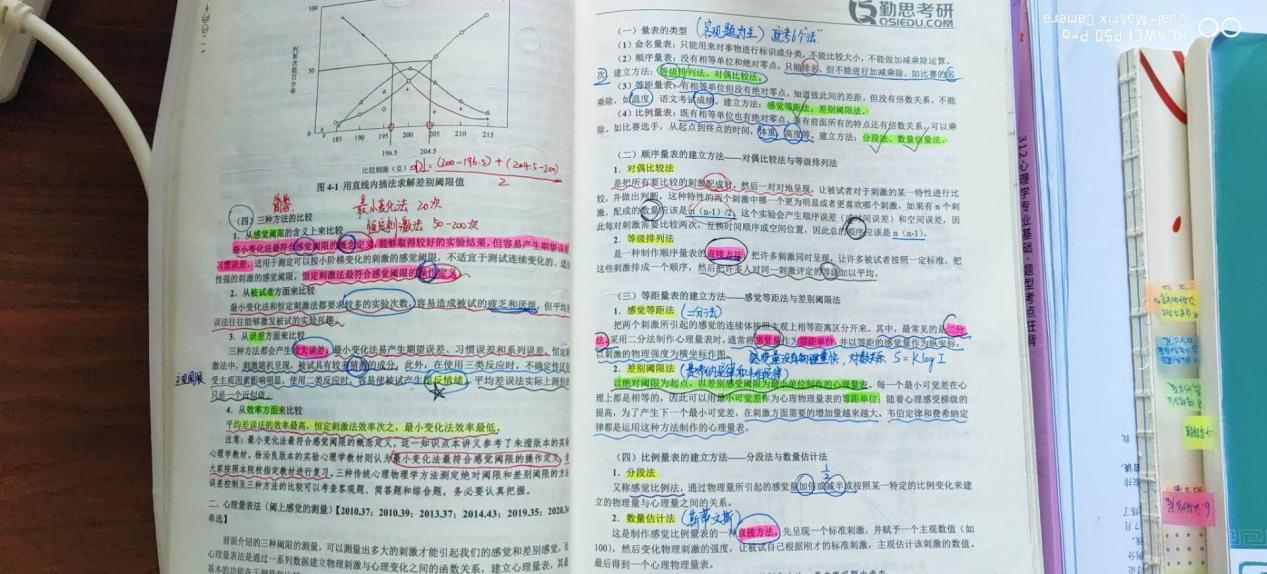 100
50
0
185 190 195 200 205 210 215
196.5 204.5
比较刺激(克)
DL=(200-196.5)+(204.5-200)
2
图 4-1 用直线内插法求解差别阈限值
简答
最小变化法 20次
恒定刺激法 50-200次
(四)三种方法的比较
1. 从感觉阈限的含义上来比较
最小变化法最符合感觉阈限的概念定义,能够取得较好的实验结果,但容易产生期望误
习惯误差,适用于测定可以按小阶梯变化的刺激的感觉阈限,不适宜于测试连续变化的、适
性强的刺激的感觉阈限,恒定刺激法最符合感觉阈限的操作定义。
2. 从被试者方面来比较
最小变化法和恒定刺激法都要求较多的实验次数,容易造成被试的疲乏和厌烦,但平均
误法往往能够激发被试的实验兴趣。
3. 从误差方面来比较
三种方法都会产生较大误差:最小变化法易产生期望误差、习惯误差和系列误差。恒定
激法中,刺激随机呈现,被试具有较多猜测的成分,此外,在使用三类反应时,不确定性区
主观阈限
受主观因素影响明显,使用二类反应时,容易使被试产生反情绪。平均差误法实际上测到
只是一个近似值。
4. 从效率方面来比较
平均差误法的效率最高,恒定刺激法效率次之,最小变化法效率最低。
注意:最小变化法最符合感觉阈限的概念定义,这一知识点本讲义参考了朱滢版本的实
心理学教材,杨治良版本的实验心理学教材则认为最小变化法最符合感觉阈限的操作定义,
大家按照本院校指定教材进行复习。三种传统心理物理学方法测定绝对阈限和差别阈限的方
误差控制及三种方法的比较可以考查客观题、简答题和综合题,务必要认真把握。
二、心理量表法(阈上感觉的测量)【2010.37;2010.39;2013.37;2014.43;2019.35;2020.36
单选】
前面介绍的三种阈限的测量,可以测量出多大的刺激才能引起我们的感觉和差别感觉,而
心理量表法是通过一系列数据建立物理刺激与心理变化之间的函数关系,建立心理量表,其最
勤思考研
QSIEDU.COM
(一)量表的类型 (客观题为主)
(1)命名量表:只能用来对事物进行标识或分类,不能比较大小,不能做加减乘除运算。
(2)顺序量表:没有相等单位和绝对零点,只能排名,但不能进行加减乘除,如比赛的名
次 建立方法:等级排列法、对偶比较法。
(3)等距量表:有相等单位但没有绝对零点,知道彼此间的差距,但没有倍数关系,不能
乘除,如温度 语文考试成绩。建立方法:感觉等距法、差别阈限法。
(4)比例量表:既有相等单位也有绝对零点,兼有前面所有的特点还有倍数关系,可以乘
除,如比赛选手,从起点到终点的时间,体重,高度等。建立方法:分段法、数量估量法。
(二)顺序量表的建立方法——对偶比较法与等级排列法
1. 对偶比较法
是把所有要比较的刺激配成对,然后一对对地呈现,让被试者对于刺激的某一特性进行比
较,并做出判断,这种特性的两个刺激中哪一个更为明显或者更喜欢哪个刺激。如果有 n 个刺
激,配成的数量应该是 n(n-1)/2,这个实验会产生顺序误差(或时间误差)和空间误差,因
此每对刺激需要比较两次,互换时间顺序或空间位置,因此总的顺序应该是 n(n-1)。
2. 等级排列法
是一种制作顺序量表的直接方法,把许多刺激同时呈现,让许多被试者按照一定标准,把
这些刺激排成一个顺序,然后把许多人对同一刺激评定的等级加以平均。
(三)等距量表的建立方法——感觉等距法与差别阈限法
1. 感觉等距法 (二分法)
把两个刺激所引起的感觉的连续体按照主观上相等距离区分开来。其中,最常见的是二分
法,采用二分法制作心理量表时,通常将感觉量作为等距单位,并以等距的感觉量作为纵坐标,
以刺激的物理强度为横坐标作图。 感觉量没有物理量快,对数关系 S=KlogI
2. 差别阈限法 (费希纳定律和韦伯定律)
以绝对阈限为起点,以差别感受阈限为最小单位制作的心理量表。每一个最小可觉差在心
理上都是相等的,因此可以用最小可觉差作为心理物理量表的等距单位;随着心理感受梯级的
提高,为了产生下一个最小可觉差,在刺激方面需要的增加量越来越大。韦伯定律和费希纳定
律都是运用这种方法制作的心理量表。
(四)比例量表的建立方法——分段法与数量估计法
1. 分段法
又称感觉比例法,通过物理量所引起的感觉量加倍或减半或按照某一特定的比例变化来建
立的物理量与心理量之间的关系。
2. 数量估计法 (斯蒂文斯)
这是制作感觉比例量表的一种直接方法,先呈现一个标准刺激,并赋予一个主观数值(如
100),然后变化物理刺激的强度,让被试自己根据刚才的标准刺激,主观估计该刺激的数值。
最后得到一个心理物理量表。
312心理学专业基础·题型考点狂背
HUAWEI P50 Pro
Dual-Matrix Camera